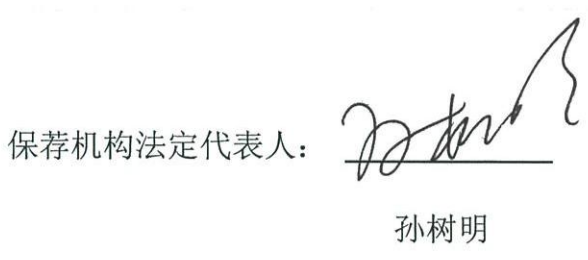 保荐机构法定代表人：
孙树明